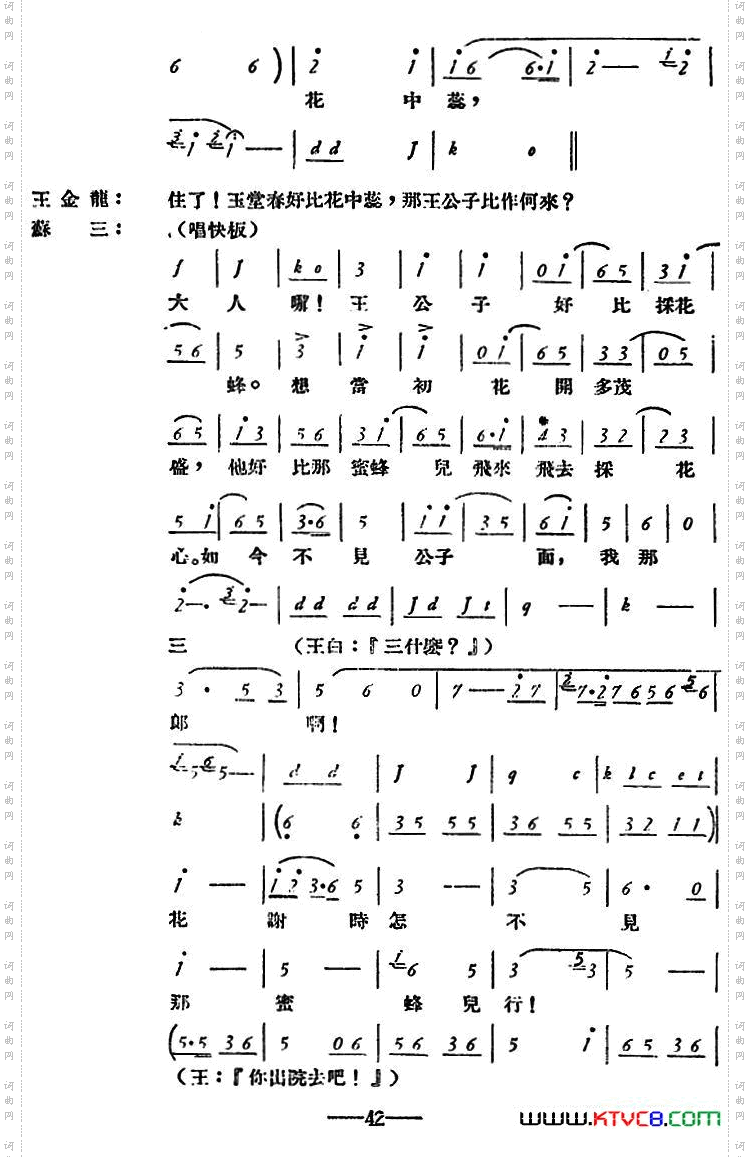 6 6 ) | 2 i | i 6 6·i | 2 — i 2 |
花 中 蕊，
3 i 2 i — | d d J | k o ‖
王金龍： 住了！玉堂春好比花中蕊，那王公子比作何來？
蘇三： （唱快板）
J | J | k o | 3 | i | i | 0 i | 6 5 | 3 i |
大 人 喔！ 王 公 子 好 比 採花
5 6 | 5 | 3 | i | i | 0 i | 6 5 | 3 3 | 0 5 |
蜂。想 當 初 花 開 多茂
6 5 | i 3 | 5 6 | 3 i | 6 5 | 6·i | 4 3 | 3 2 | 2 3 |
盛，他好 比那 蜜蜂 兒 飛來 飛去 採 花
5 i | 6 5 | 3·6 | 5 | i i | 3 5 | 6 i | 5 | 6 | 0 |
心。如 今 不 見 公子 面，我那
2—· 3 2— | d d d d d d | J d J t | q — | k — |
三 （王白：『三什麼？』）
3 · 5 3 | 5 6 0 | 7 — 2 7 | 2 7·2 7 6 5 6 5 6 |
郎 啊！
i 5 6 5 — | d d | J J | q c | k l c e t |
k | ( 6 6 | 3 5 5 5 | 3 6 5 5 | 3 2 1 1 ) |
i — | i 2 3·6 5 | 3 — | 3 5 | 6· 0 |
花 謝 時 怎 不 見
i — | 5 — | i 6 5 | 3 5 3 | 5 — |
那 蜜 蜂 兒 行！
( 5·5 3 6 | 5 0 6 | 5 6 3 6 | 5 i | 6 5 3 6 |
（王：『你出院去吧！』）
—42—
www.KTVC8.com
词曲网